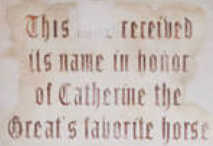 This received
its name in honor
of Catherine the
Great's favorite horse